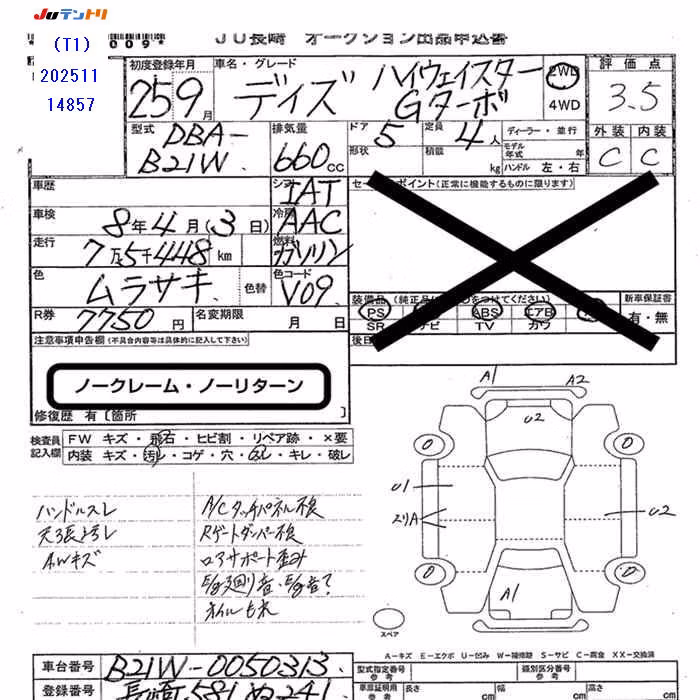 JUテントリ
(T1)
*009*
JU長崎 オークション出品申込書
202511
14857
初度登録年月 車名・グレード 評価点
25 9月 デイズ ハイウェイスター Gターボ 2WD 4WD 3.5
型式 排気量 ドア 定員 ディーラー・並行 外装 内装
DBA-B21W 660cc 5 4人 C C
形状 積載 kg モデル年式 年 ハンドル 左・右
車歴 シフト IAT セールスポイント(正常に機能するものに限ります)
車検 8年4月(3日) 冷房 AAC
走行 7万5千448km 燃料 ガソリン
色 ムラサキ 色替 色コード V09
装備品 新車保証書
PS ABS エアB 有・無
SR ナビ TV カワ
R券 7750円 名変期限 月 日
注意事項申告欄(不具合内容等は具体的に記入して下さい)
ノークレーム・ノーリターン
修復歴 有〔箇所 〕
検査員記入欄 FW キズ・飛石・ヒビ割・リペア跡・×要
内装 キズ・汚レ・コゲ・穴・スレ・キレ・破レ
A1 A2
U2
0 0
U1
エクリA
U2
0 0
A1
スペア
ハンドルスレ A/Cタッチパネル不良
天張ヨゴレ Rゲートダンパー不良
AWキズ ロアサポート歪み
オイルもれ
A-キズ E-エクボ U-凹み W-補修跡 S-サビ C-腐食 XX-交換済
車台番号 B21W-0050313
型式指定番号 参考 類別区分番号 参考
登録番号 長崎 581 241
車庫証明用 参考 長さ cm 幅 cm 高さ cm